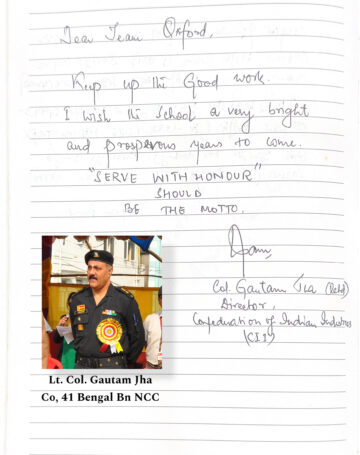 Dear Team Oxford,
Keep up the Good work.
I wish the School a very bright
and prosperous years to come.
"SERVE WITH HONOUR"
SHOULD
BE THE MOTTO.
Col. Gautam Jha (Retd)
Director,
Confederation of Indian Industries
(CII)
Lt. Col. Gautam Jha
Co, 41 Bengal Bn NCC